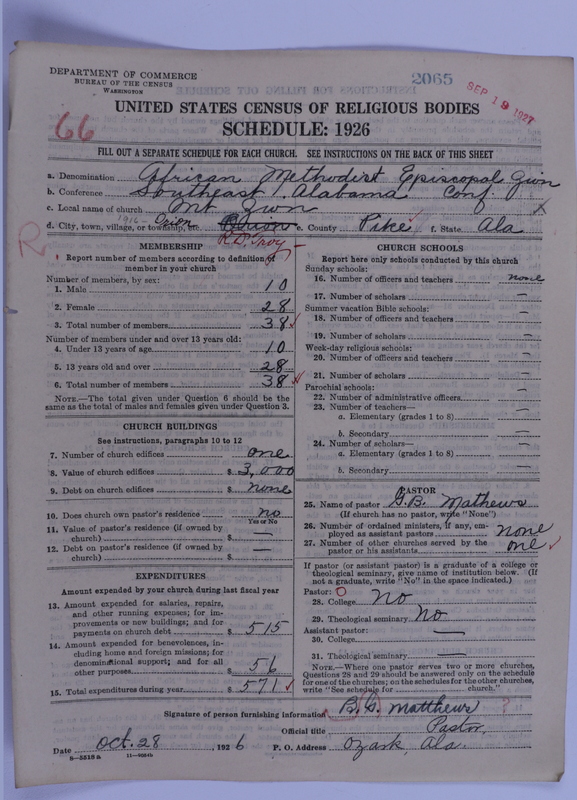 DEPARTMENT OF COMMERCE
BUREAU OF THE CENSUS
WASHINGTON
2065
SEP 19 1927
66
UNITED STATES CENSUS OF RELIGIOUS BODIES
SCHEDULE: 1926
FILL OUT A SEPARATE SCHEDULE FOR EACH CHURCH. SEE INSTRUCTIONS ON THE BACK OF THIS SHEET
a. Denomination African Methodist Episcopal Zion
b. Conference Southeast Alabama Conf.
c. Local name of church Mt Zion
d. City, town, village, or township, etc. 1916- Orion e. County Pike f. State Ala
R.D. Troy
R
MEMBERSHIP
Report number of members according to definition of member in your church
Number of members, by sex:
1. Male 10
2. Female 28
3. Total number of members 38
Number of members under and over 13 years old:
4. Under 13 years of age 10
5. 13 years old and over 28
6. Total number of members 38
NOTE.—The total given under Question 6 should be the
same as the total of males and females given under Question 3.
CHURCH BUILDINGS
See instructions, paragraphs 10 to 12
7. Number of church edifices one
8. Value of church edifices $ 3,000
9. Debt on church edifices $ none
10. Does church own pastor's residence? no
Yes or No
11. Value of pastor's residence (if owned by
church) $ —
12. Debt on pastor's residence (if owned by
church) $ —
EXPENDITURES
Amount expended by your church during last fiscal year
13. Amount expended for salaries, repairs,
and other running expenses; for im-
provements or new buildings; and for
payments on church debt $ 515
14. Amount expended for benevolences, in-
cluding home and foreign missions; for
denominational support; and for all
other purposes $ 56
15. Total expenditures during year $ 571
CHURCH SCHOOLS
Report here only schools conducted by this church
Sunday schools:
16. Number of officers and teachers none
17. Number of scholars —
Summer vacation Bible schools:
18. Number of officers and teachers —
19. Number of scholars —
Week-day religious schools:
20. Number of officers and teachers —
21. Number of scholars —
Parochial schools:
22. Number of administrative officers —
23. Number of teachers—
a. Elementary (grades 1 to 8) —
b. Secondary —
24. Number of scholars—
a. Elementary (grades 1 to 8) —
b. Secondary —
PASTOR
25. Name of pastor G.B. Mathews
(If church has no pastor, write "None")
26. Number of ordained ministers, if any, em-
ployed as assistant pastors none
27. Number of other churches served by the
pastor or his assistants one
If pastor (or assistant pastor) is a graduate of a college or
theological seminary, give name of institution below. (If
not a graduate, write "No" in the space indicated.)
Pastor:
28. College No
29. Theological seminary No
Assistant pastor:
30. College —
31. Theological seminary —
NOTE.—Where one pastor serves two or more churches,
Questions 28 and 29 should be answered only on the schedule
for one of the churches; on the schedules for the other churches,
write "See schedule for church."
Signature of person furnishing information B.G. Matthews ?
Official title Pastor,
Date Oct. 28, 1926 P. O. Address Ozark, Ala.
8—5518a 11—9264b